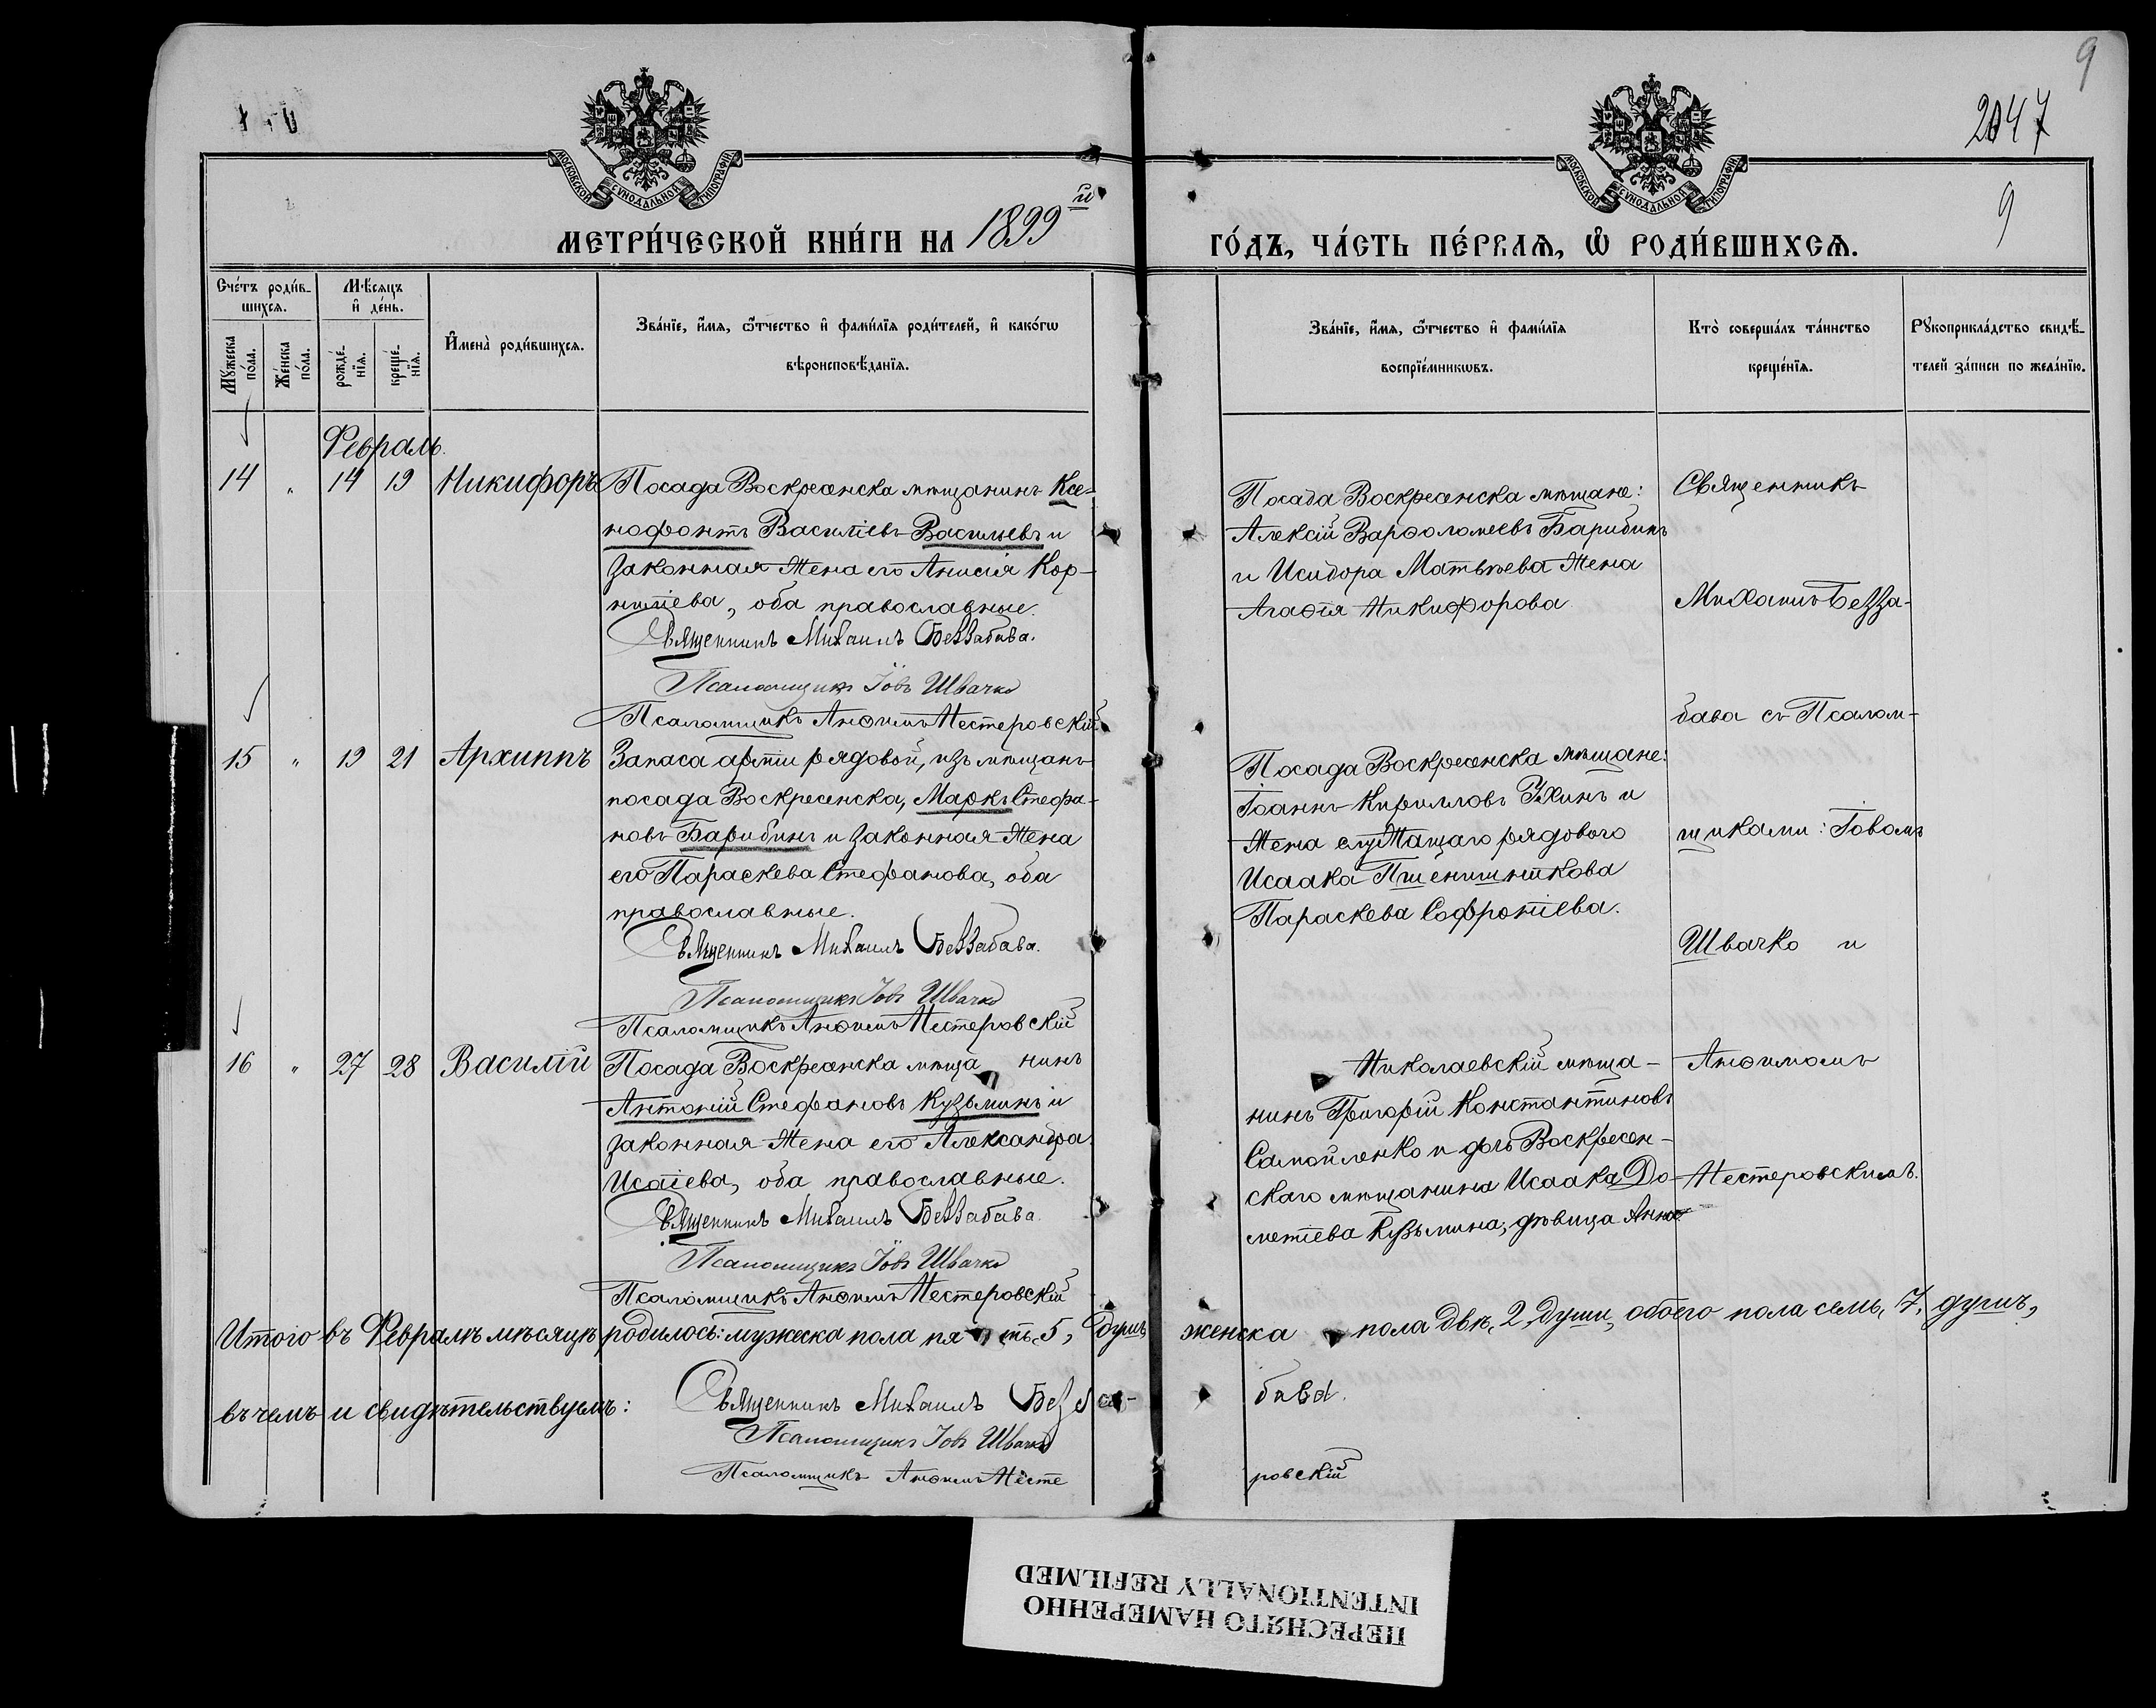 9
2047
9
МОСКОВСКОЙ СѴНОДАЛЬНОЙ ТИПОГРАФІИ
МОСКОВСКОЙ СѴНОДАЛЬНОЙ ТИПОГРАФІИ
МЕТРИ́ЧЕСКОЙ КНИ́ГИ НА 1899й
ГО́ДЪ, ЧА́СТЬ ПЕ́РВАѦ, Ѡ҆ РОДИ́ВШИХСѦ.
Сче́тъ роди́в-
шихсѧ.
Мѣ́сѧцъ
и҆ де́нь.
Мꙋ́жеска
по́ла.
Же́нска
по́ла.
рожде́-
нїѧ.
креще́-
нїѧ.
И҆мена̀ роди́вшихсѧ.
Зва́нїе, и҆́мѧ, ѻ҆́тчество и҆ фами́лїѧ роди́телей, и҆ како́гѡ
вѣроисповѣ́данїѧ.
Зва́нїе, и҆́мѧ, ѻ҆́тчество и҆ фами́лїѧ
воспрїе́мникѡвъ.
Кто̀ соверша́лъ та́инство
креще́нїѧ.
Рꙋкоприкла́дство свидѣ́-
телей за́писи по жела́нїю.
Февраль.
14 „ 14 19 Никифоръ
Посада Воскресенска мѣщанинъ Ксе-
нофонтъ Василіевъ Васильевъ и
законная жена его Анисія Кор-
ниліева, оба православные.
Священникъ Михаилъ Беззабава.
Псаломщикъ Іовъ Швачко
Псаломщикъ Анѳимъ Нестеровскій
Посада Воскресенска мѣщане:
Алексій Варѳоломеевъ Барибинъ
и Исидора Матвѣева жена
Агаѳія Никифорова
Священникъ
Михаилъ Безза-
бава съ Псалом-
щиками: Іовомъ
Швачко и
Анѳимомъ
Нестеровскимъ.
15 „ 19 21 Архиппъ
Запаса арміи рядовой, изъ мѣщанъ
посада Воскресенска, Маркъ Стефа-
новъ Барибинъ и законная жена
его Параскева Стефанова, оба
православные.
Священникъ Михаилъ Беззабава.
Псаломщикъ Іовъ Швачко
Псаломщикъ Анѳимъ Нестеровскій
Посада Воскресенска мѣщане:
Іоаннъ Кирилловъ Ухинъ и
жена служащаго рядового
Исаака Пшенишникова
Параскева Софроніева.
16 „ 27 28 Василій
Посада Воскресенска мѣща нинъ
Антоній Стефановъ Кузьминъ и
законная жена его Александра
Исаіева, оба православные.
Священникъ Михаилъ Беззабава.
Псаломщикъ Іовъ Швачко
Псаломщикъ Анѳимъ Нестеровскій
Николаевскій мѣща-
нинъ Григорій Константиновъ
Самойленко и дочь Воскресен-
скаго мѣщанина Исаака До-
метіева Кузьмина, дѣвица Анна
Итого въ Февралѣ мѣсяцѣ родилось: мужеска пола пя ть, 5, душъ женска пола двѣ, 2, души, обоего пола семь, 7, душъ,
въ чемъ и свидѣтельствуемъ:
Священникъ Михаилъ Безза- бава.
Псаломщикъ Іовъ Швачко
Псаломщикъ Анѳимъ Несте ровскій
ПЕРЕСНЯТО НАМЕРЕННО
INTENTIONALLY REFILMED